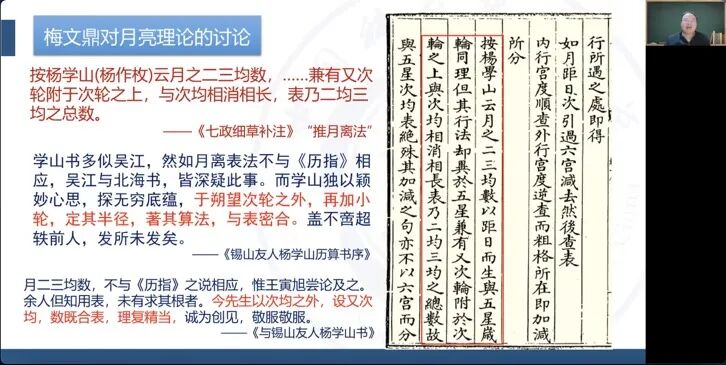 梅文鼎对月亮理论的讨论
按杨学山(杨作枚)云月之二三均数，……兼有又次
轮附于次轮之上，与次均相消相长，表乃二均三
均之总数。
——《七政细草补注》 “推月离法”
学山书多似吴江，然如月离表法不与《历指》相
应，吴江与北海书，皆深疑此事。而学山独以颖
妙心思，探无穷底蕴，于朔望次轮之外，再加小
轮，定其半径，著其算法，与表密合。盖不啻超
轶前人，发所未发矣。
——《锡山友人杨学山历算书序》
月二三均数，不与《历指》之说相应，惟王寅旭尝论及之。
余人但知用表，未有求其根者。今先生以次均之外，设又次
均，数既合表，理复精当，诚为创见，敬服敬服。
——《与锡山友人杨学山书》
行所遇之处即得
如月距日次引過六宮減去然後查表
內行宮度順查外行宮度逆查而粗格所在即加減
所分
按楊學山云月之二三均數以距日而生與五星歲
輪同理但其行法却異於五星兼有又次輪附於次
輪之上與次均相消相長表乃二均三均之總數故
與五星次均表絶殊其加減之句亦不以六宮而分